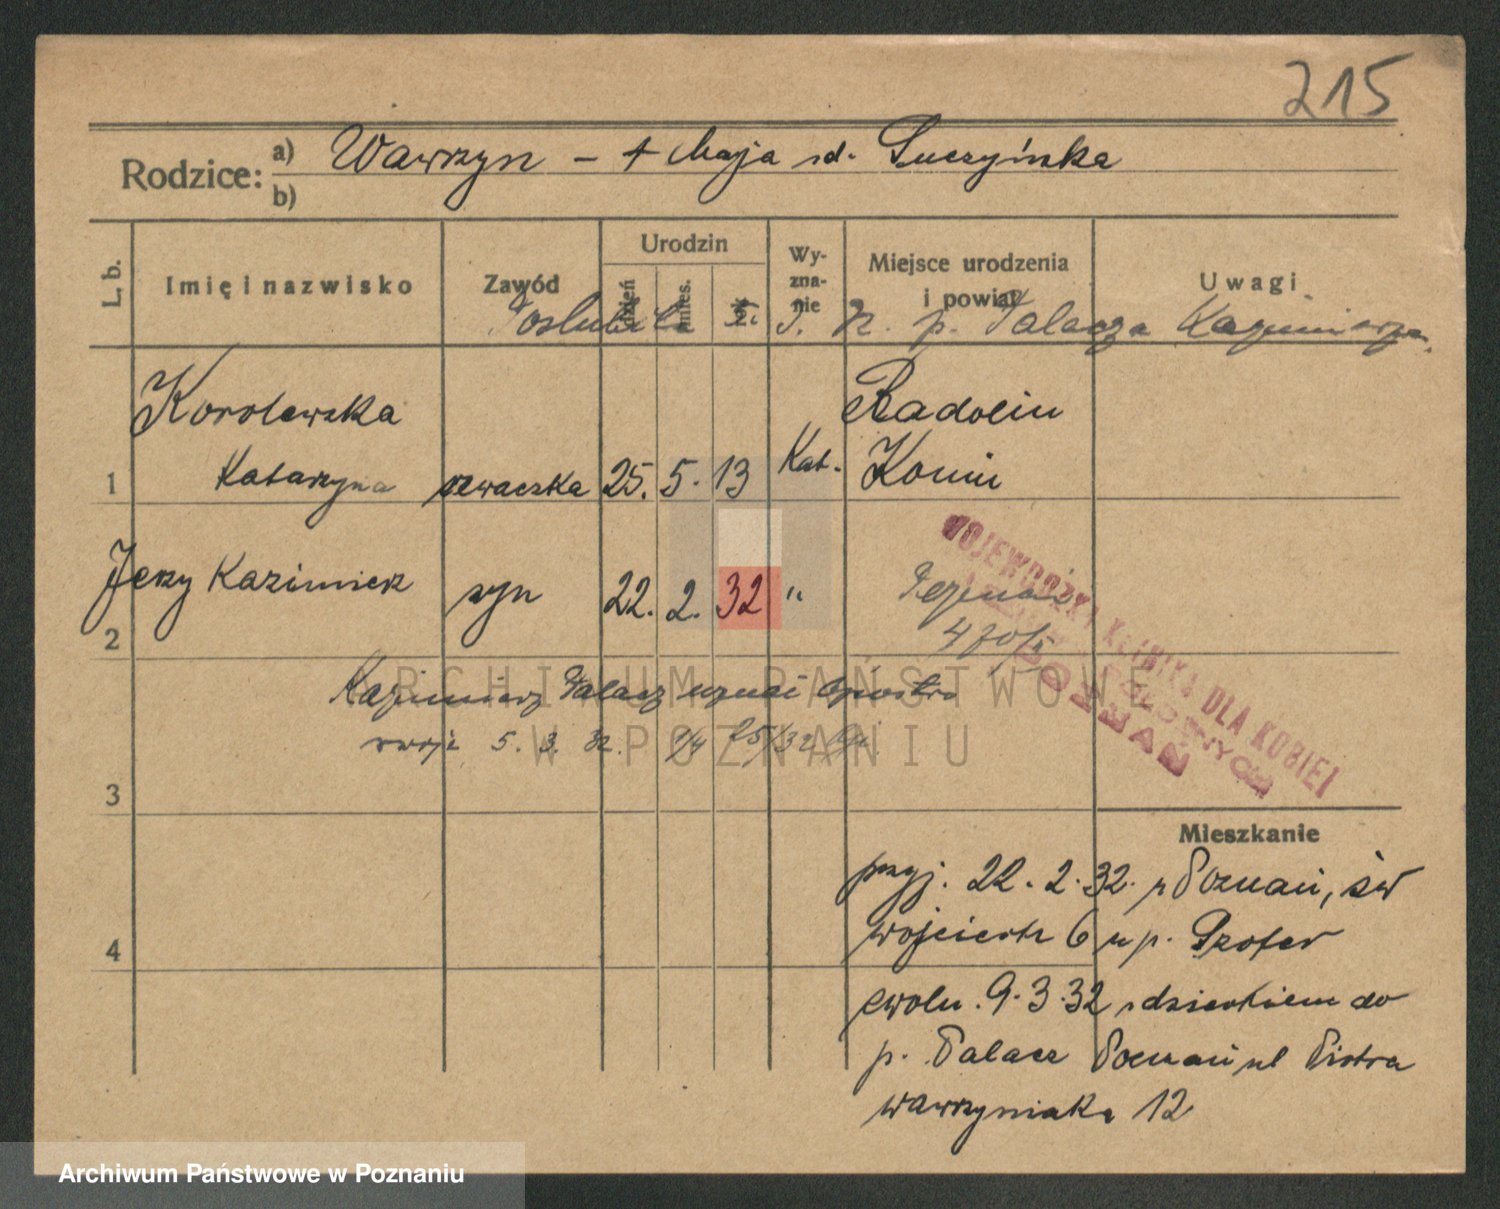 215
Rodzice: a) Wawrzyn – + Maja z d. Suczyńska
b)
L. b. Imię i nazwisko Zawód Urodzin dzień mies. rok Wyznanie Miejsce urodzenia i powiat Uwagi
Poślubiła p. Palacza Kazimierza.
Korolewska Radolin
1 Katarzyna szwaczka 25. 5. 13 Kat. Konin
2 Jerzy Kazimierz syn 22. 2. 32 " Poznań
WOJEWÓDZKA KLINIKA DLA KOBIET
POZNAŃ
Kazimierz Palacz uznał ojcostwo
swoje 5. 3. 32.
3
Mieszkanie
przyj. 22. 2. 32. z Poznań, św
4 wojciech 6 u p. Szofer
zwoln. 9. 3. 32 z dzieckiem do
p. Palacz Poznań ul Piotra
wawrzyniaka 12
ARCHIWUM PAŃSTWOWE
W POZNANIU
Archiwum Państwowe w Poznaniu